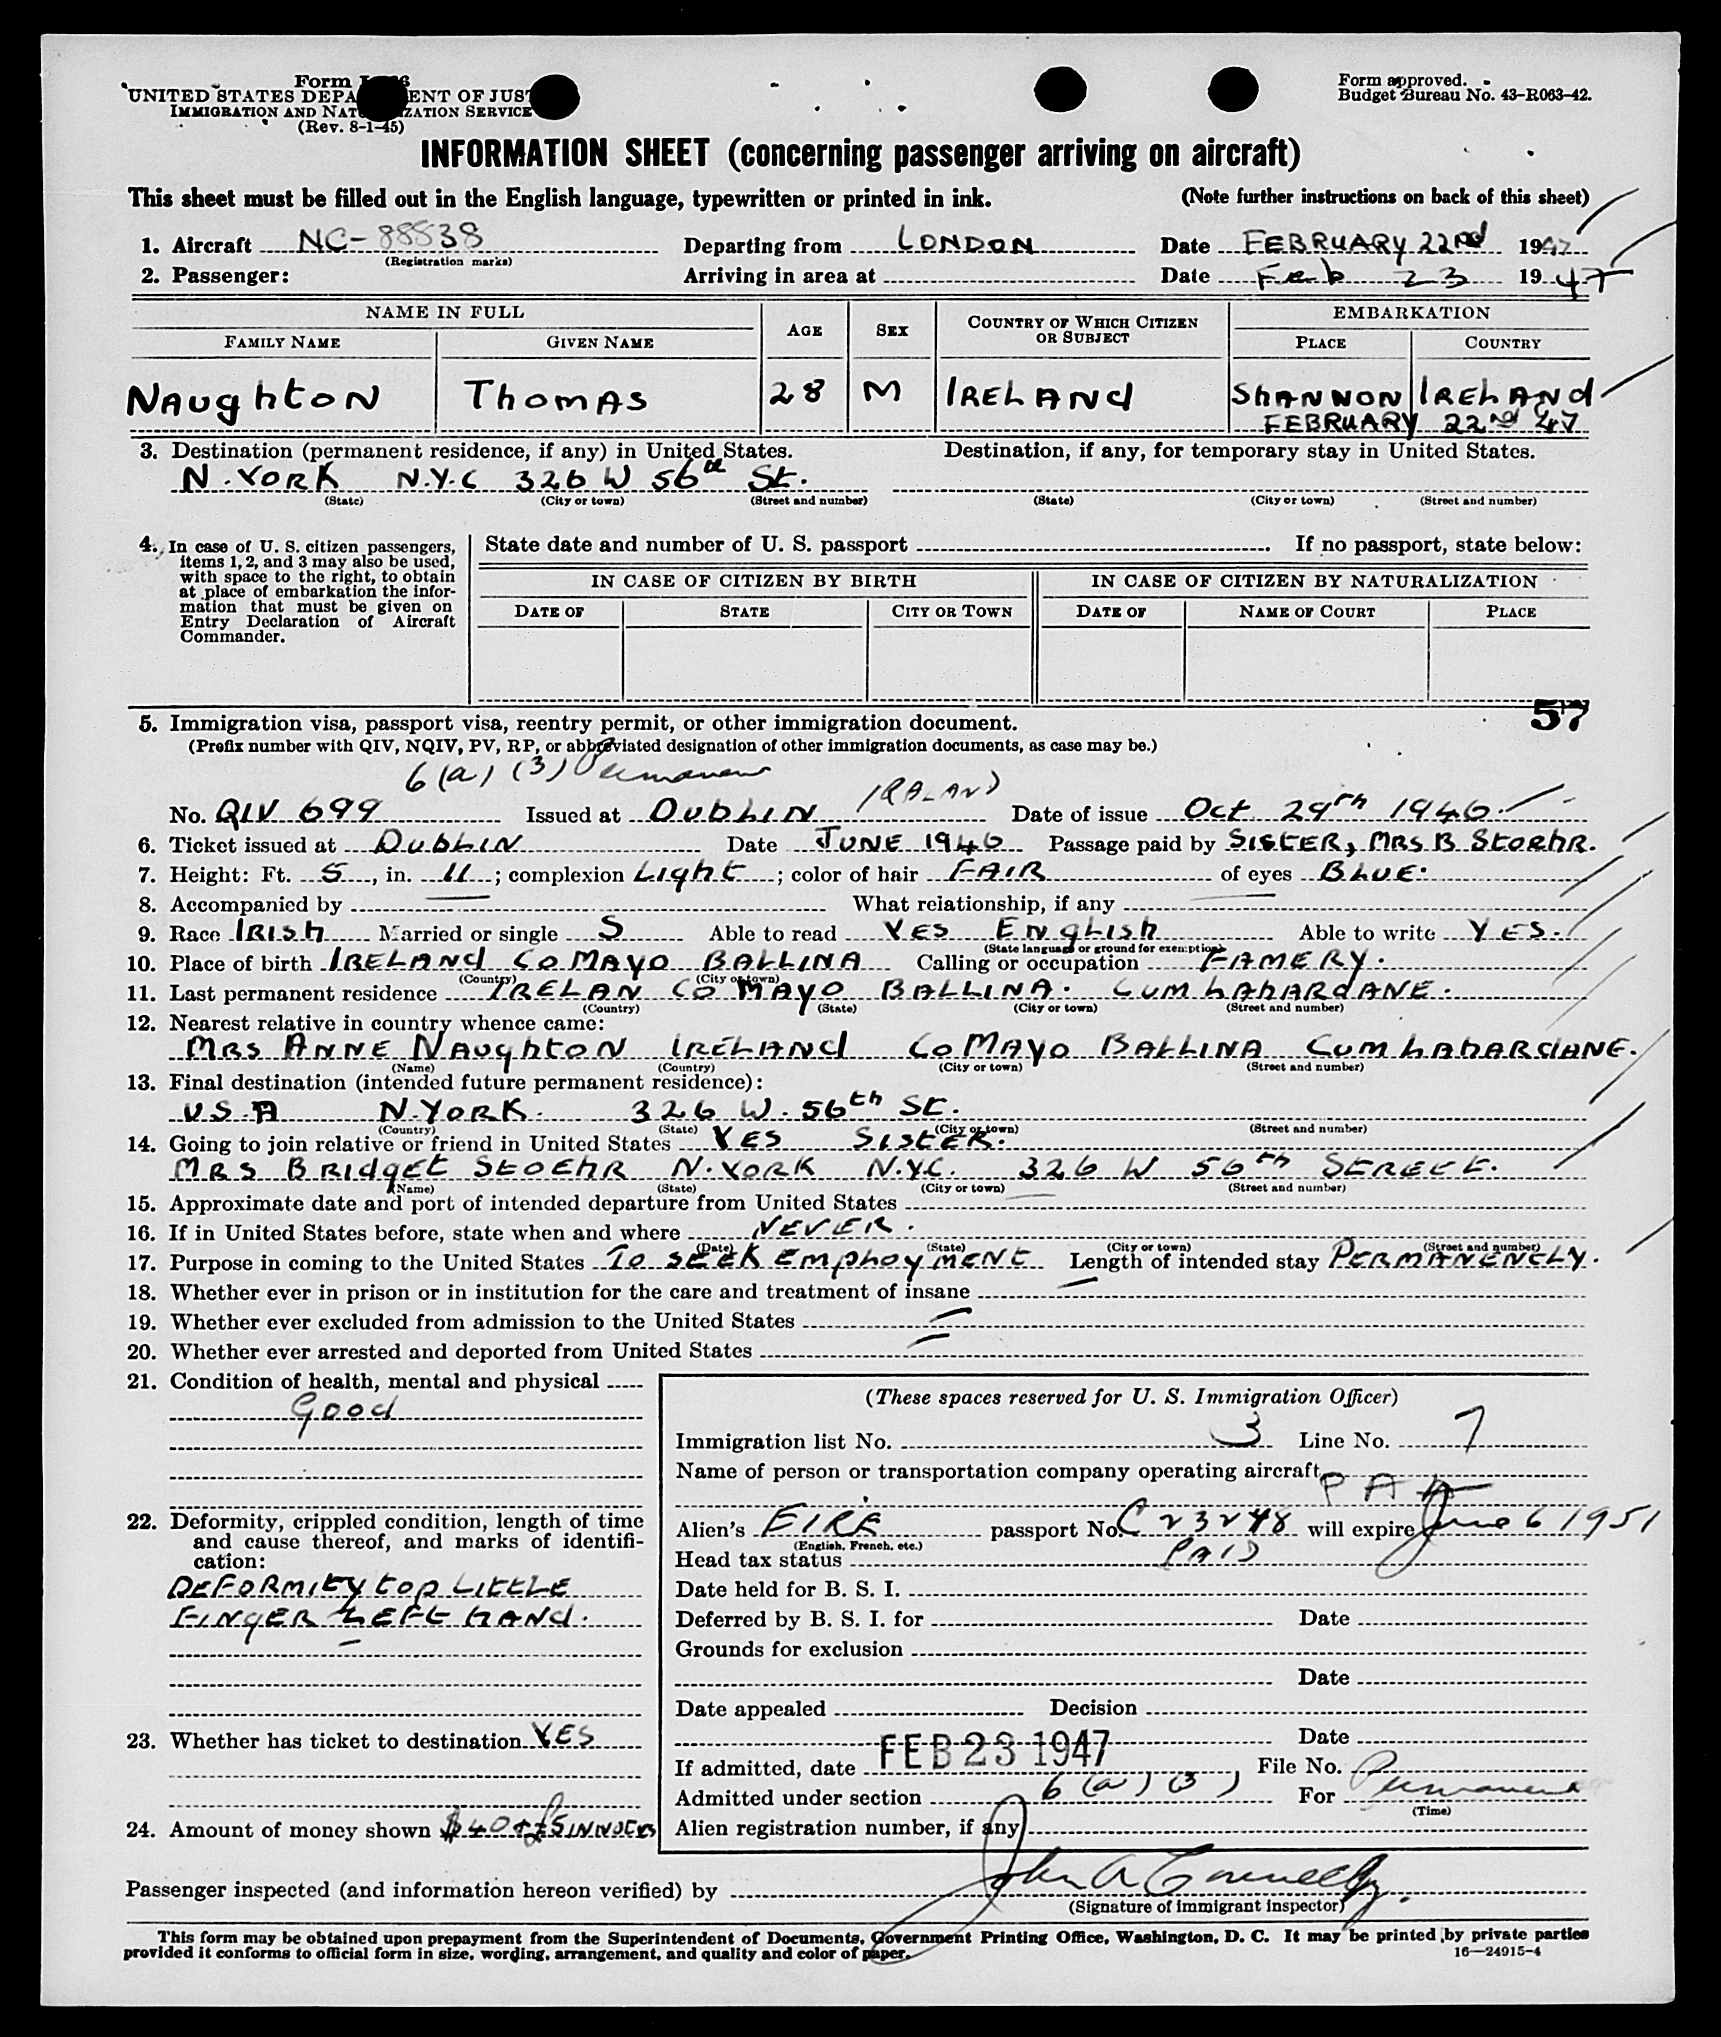 Form approved.
UNITED STATES DEPA ENT OF JUST
Budget Bureau No. 43-R063-42.
IMMIGRATION AND NATU IZATION SERVICE
(Rev. 8-1-45)
INFORMATION SHEET (concerning passenger arriving on aircraft)
This sheet must be filled out in the English language, typewritten or printed in ink. (Note further instructions on back of this sheet)
1. Aircraft NC-88838 Departing from LONDON Date FEBRUARY 22nd 1947
(Registration marks)
2. Passenger: Arriving in area at Date Feb 23 1947
NAME IN FULL AGE SEX COUNTRY OF WHICH CITIZEN OR SUBJECT EMBARKATION
FAMILY NAME GIVEN NAME PLACE COUNTRY
NAughtoN ThomAS 28 M IRELANd ShANNON IRELANd
FEBRUARY 22nd 47
3. Destination (permanent residence, if any) in United States. Destination, if any, for temporary stay in United States.
N. YORK N.Y.C 326 W 56th St.
(State) (City or town) (Street and number) (State) (City or town) (Street and number)
4. In case of U. S. citizen passengers, items 1, 2, and 3 may also be used, with space to the right, to obtain at place of embarkation the information that must be given on Entry Declaration of Aircraft Commander.
State date and number of U. S. passport If no passport, state below:
IN CASE OF CITIZEN BY BIRTH IN CASE OF CITIZEN BY NATURALIZATION
DATE OF STATE CITY OR TOWN DATE OF NAME OF COURT PLACE
57
5. Immigration visa, passport visa, reentry permit, or other immigration document.
(Prefix number with QIV, NQIV, PV, RP, or abbreviated designation of other immigration documents, as case may be.)
6 (a) (3) Permanent
No. QIV 699 Issued at DUBLIN IRALAND Date of issue Oct 29th 1946.
6. Ticket issued at DUBLIN Date JUNE 1946 Passage paid by SISTER, MRS B StOEhR.
7. Height: Ft. 5, in. 11; complexion Light; color of hair FAIR of eyes BLUE.
8. Accompanied by — What relationship, if any —
9. Race IRISh Married or single S Able to read YES ENglISh Able to write YES.
(State language or ground for exemption)
10. Place of birth IRELANd CO MAYO BALLINA Calling or occupation FAMERY.
(Country) (City or town)
11. Last permanent residence IRELAN CO MAYO BALLINA. CUMLAHARdANE.
(Country) (State) (City or town) (Street and number)
12. Nearest relative in country whence came:
MRS ANNE NAughtoN IRELANd CO MAYO BALLINA CUMLAHARdANE.
(Name) (Country) (City or town) (Street and number)
13. Final destination (intended future permanent residence):
U.S.A N.YORK. 326 W. 56th St.
(Country) (State) (City or town) (Street and number)
14. Going to join relative or friend in United States YES SIStER.
MRS BRIdgEt StOEhR N.YORK N.Y.C. 326 W 56th StREEt.
(Name) (State) (City or town) (Street and number)
15. Approximate date and port of intended departure from United States —
16. If in United States before, state when and where NEVER.
(Date) (State) (City or town) (Street and number)
17. Purpose in coming to the United States To SEEK EmployMENt Length of intended stay PERMANENtLY.
18. Whether ever in prison or in institution for the care and treatment of insane —
19. Whether ever excluded from admission to the United States —
20. Whether ever arrested and deported from United States —
21. Condition of health, mental and physical
Good
22. Deformity, crippled condition, length of time and cause thereof, and marks of identification:
DEFORMIty top LIttLE
FINgER LEFt hANd.
23. Whether has ticket to destination YES
24. Amount of money shown $40 + £5
(These spaces reserved for U. S. Immigration Officer)
Immigration list No. 3 Line No. 7
Name of person or transportation company operating aircraft
P A A
Alien's EIRE passport No. C 23248 will expire June 6 1951
(English, French, etc.)
Head tax status PAID
Date held for B. S. I.
Deferred by B. S. I. for Date
Grounds for exclusion
Date
Date appealed Decision
Date
If admitted, date FEB 23 1947 File No.
Admitted under section 6 (a) (3) For Permanent
(Time)
Alien registration number, if any
Passenger inspected (and information hereon verified) by John A Connelly.
(Signature of immigrant inspector)
This form may be obtained upon prepayment from the Superintendent of Documents, Government Printing Office, Washington, D. C. It may be printed by private parties
provided it conforms to official form in size, wording, arrangement, and quality and color of paper.
16—24915-4